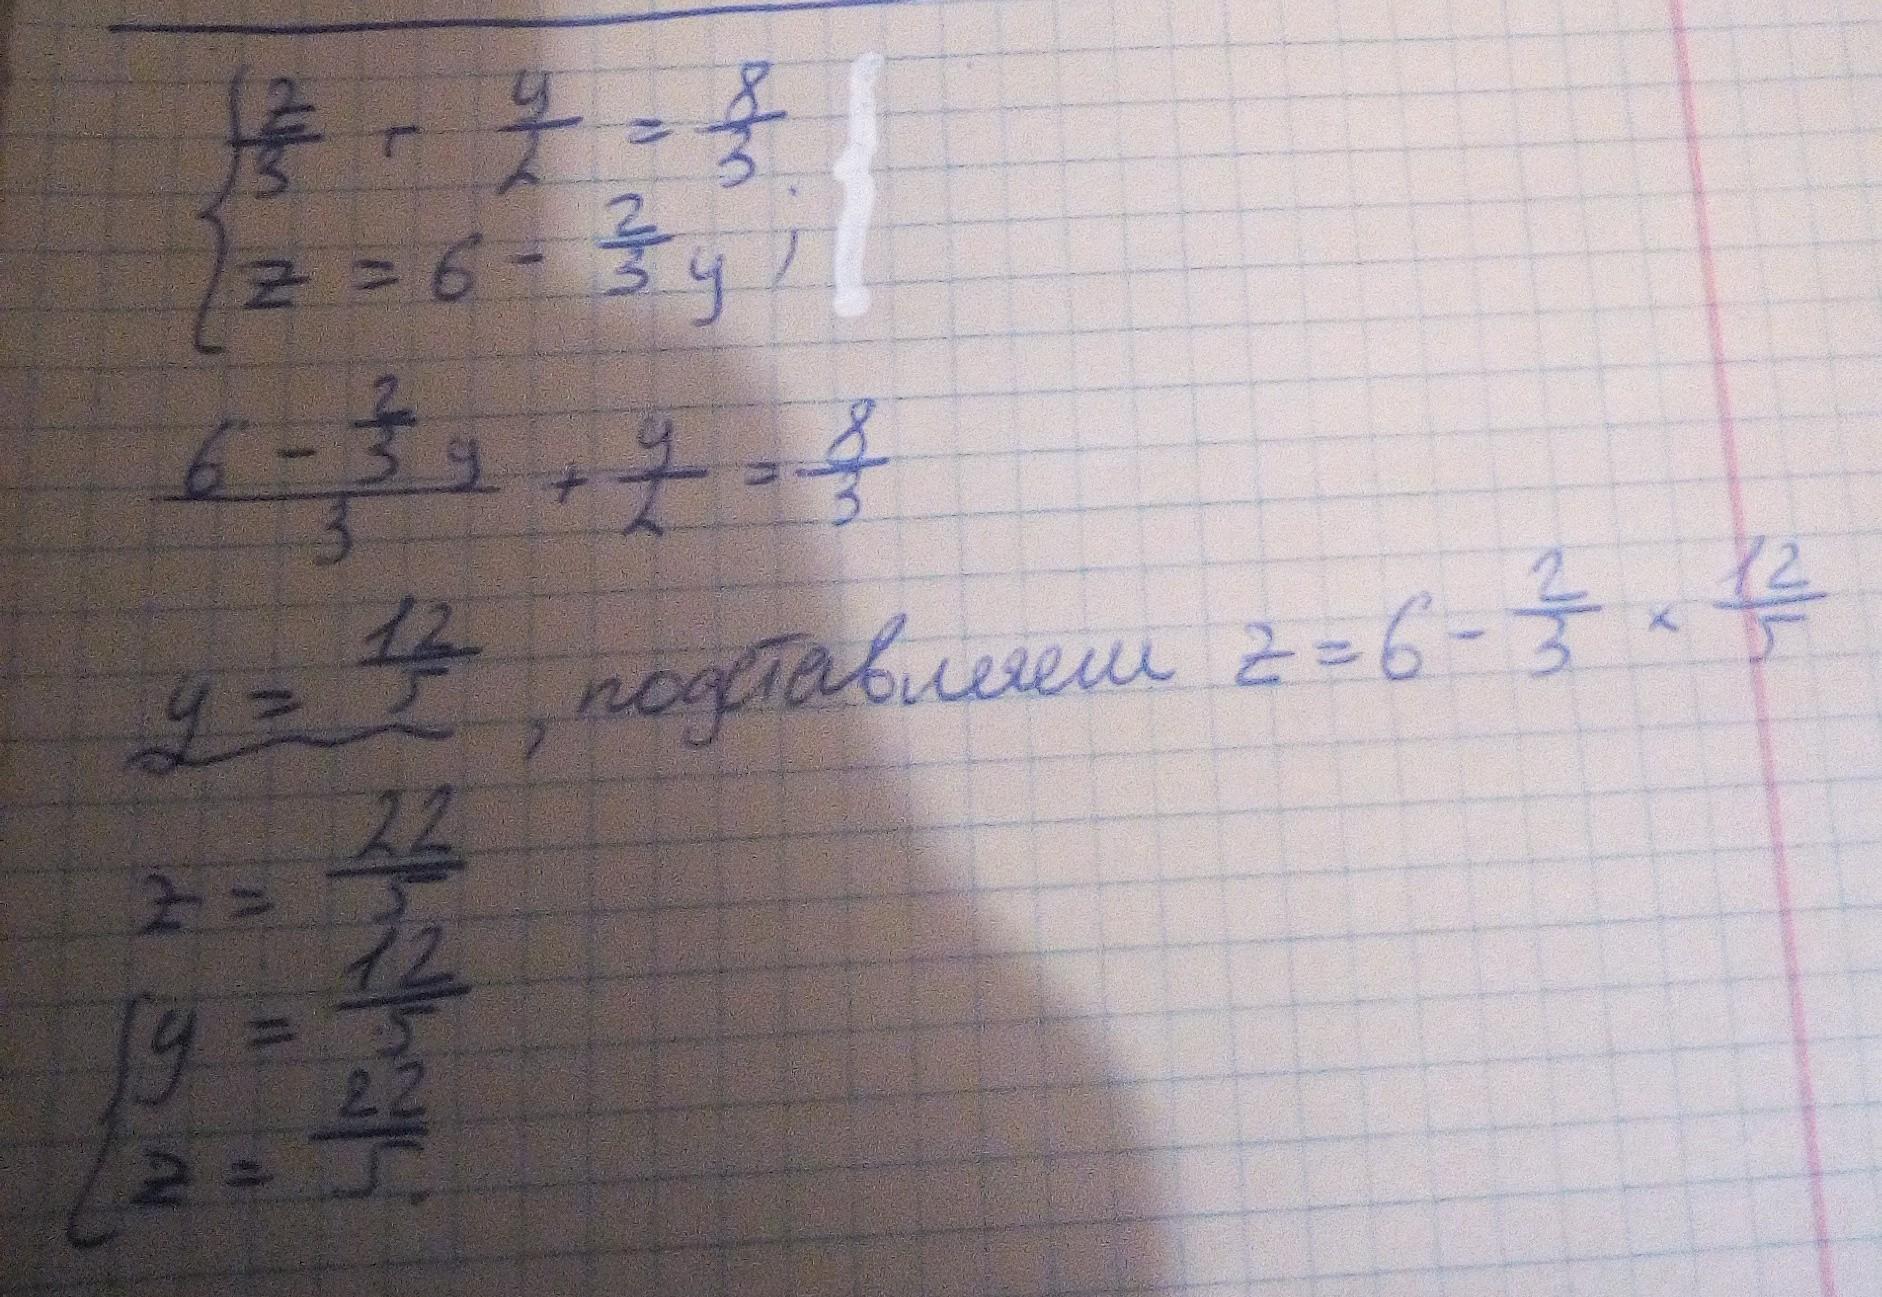 { z/3 + y/2 = 8/3
z = 6 - 2/3 y ;
(6 - 2/3 y)/3 + y/2 = 8/3
y = 12/5 , подставляем z = 6 - 2/3 × 12/5
z = 22/5
{ y = 12/5
z = 22/5.